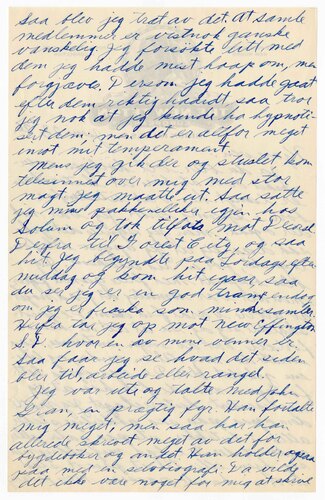 Saa blev jeg træt av det. At samle
medlemmer er vistnok ganske
vanskelig. Jeg forsökte litt med
dem jeg hadde mist haap om, men
borgraver. Dersom jeg hadde gaat
efter dem riktig hadidt, saa tror
jeg nok at jeg kunde ha hypnoti-
sert dem; men det er altfor meget
imot mit temperament.
Mens jeg gik der og stuslet kom
reisesinnet over mig med stor
magt. Jeg maatte ut. Saa satte
jeg mine pakkenelliker igjen hos
Solum og tok tilfots mot Decorah
Derfra til Forest City, og saa
hit. Jeg begyndte paa Lördags efter-
middag og kom hit igaar, saa
du ser jeg er en god tramp endog
om jeg er fraska som mindesamler.
Herfra tar jeg op mot New Effington
S.D. hvor en av mine venner er.
Saa faar jeg se hvad det siden
blir til, arbeide eller rangel.
Jeg var ute og talte med John
Sian, en prægtig fyr. Han fortalte
mig meget; men saa har han
allerede skrevet meget av det for
bygdeböker og andet. Han holder ogsaa
paa med en selvbiografi. Da vilde
det ikke være noget for mig at skrive